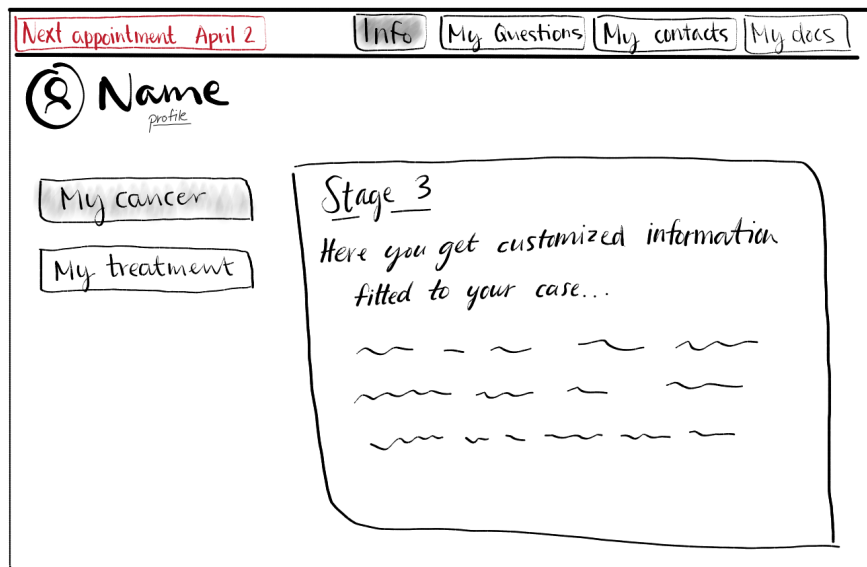 Next appointment April 2
Info
My Questions
My contacts
My docs
Name
profile
My cancer
My treatment
Stage 3
Here you get customized information
fitted to your case...